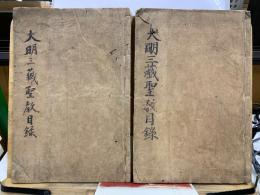 大明三藏聖教目録
大明三藏聖教目録